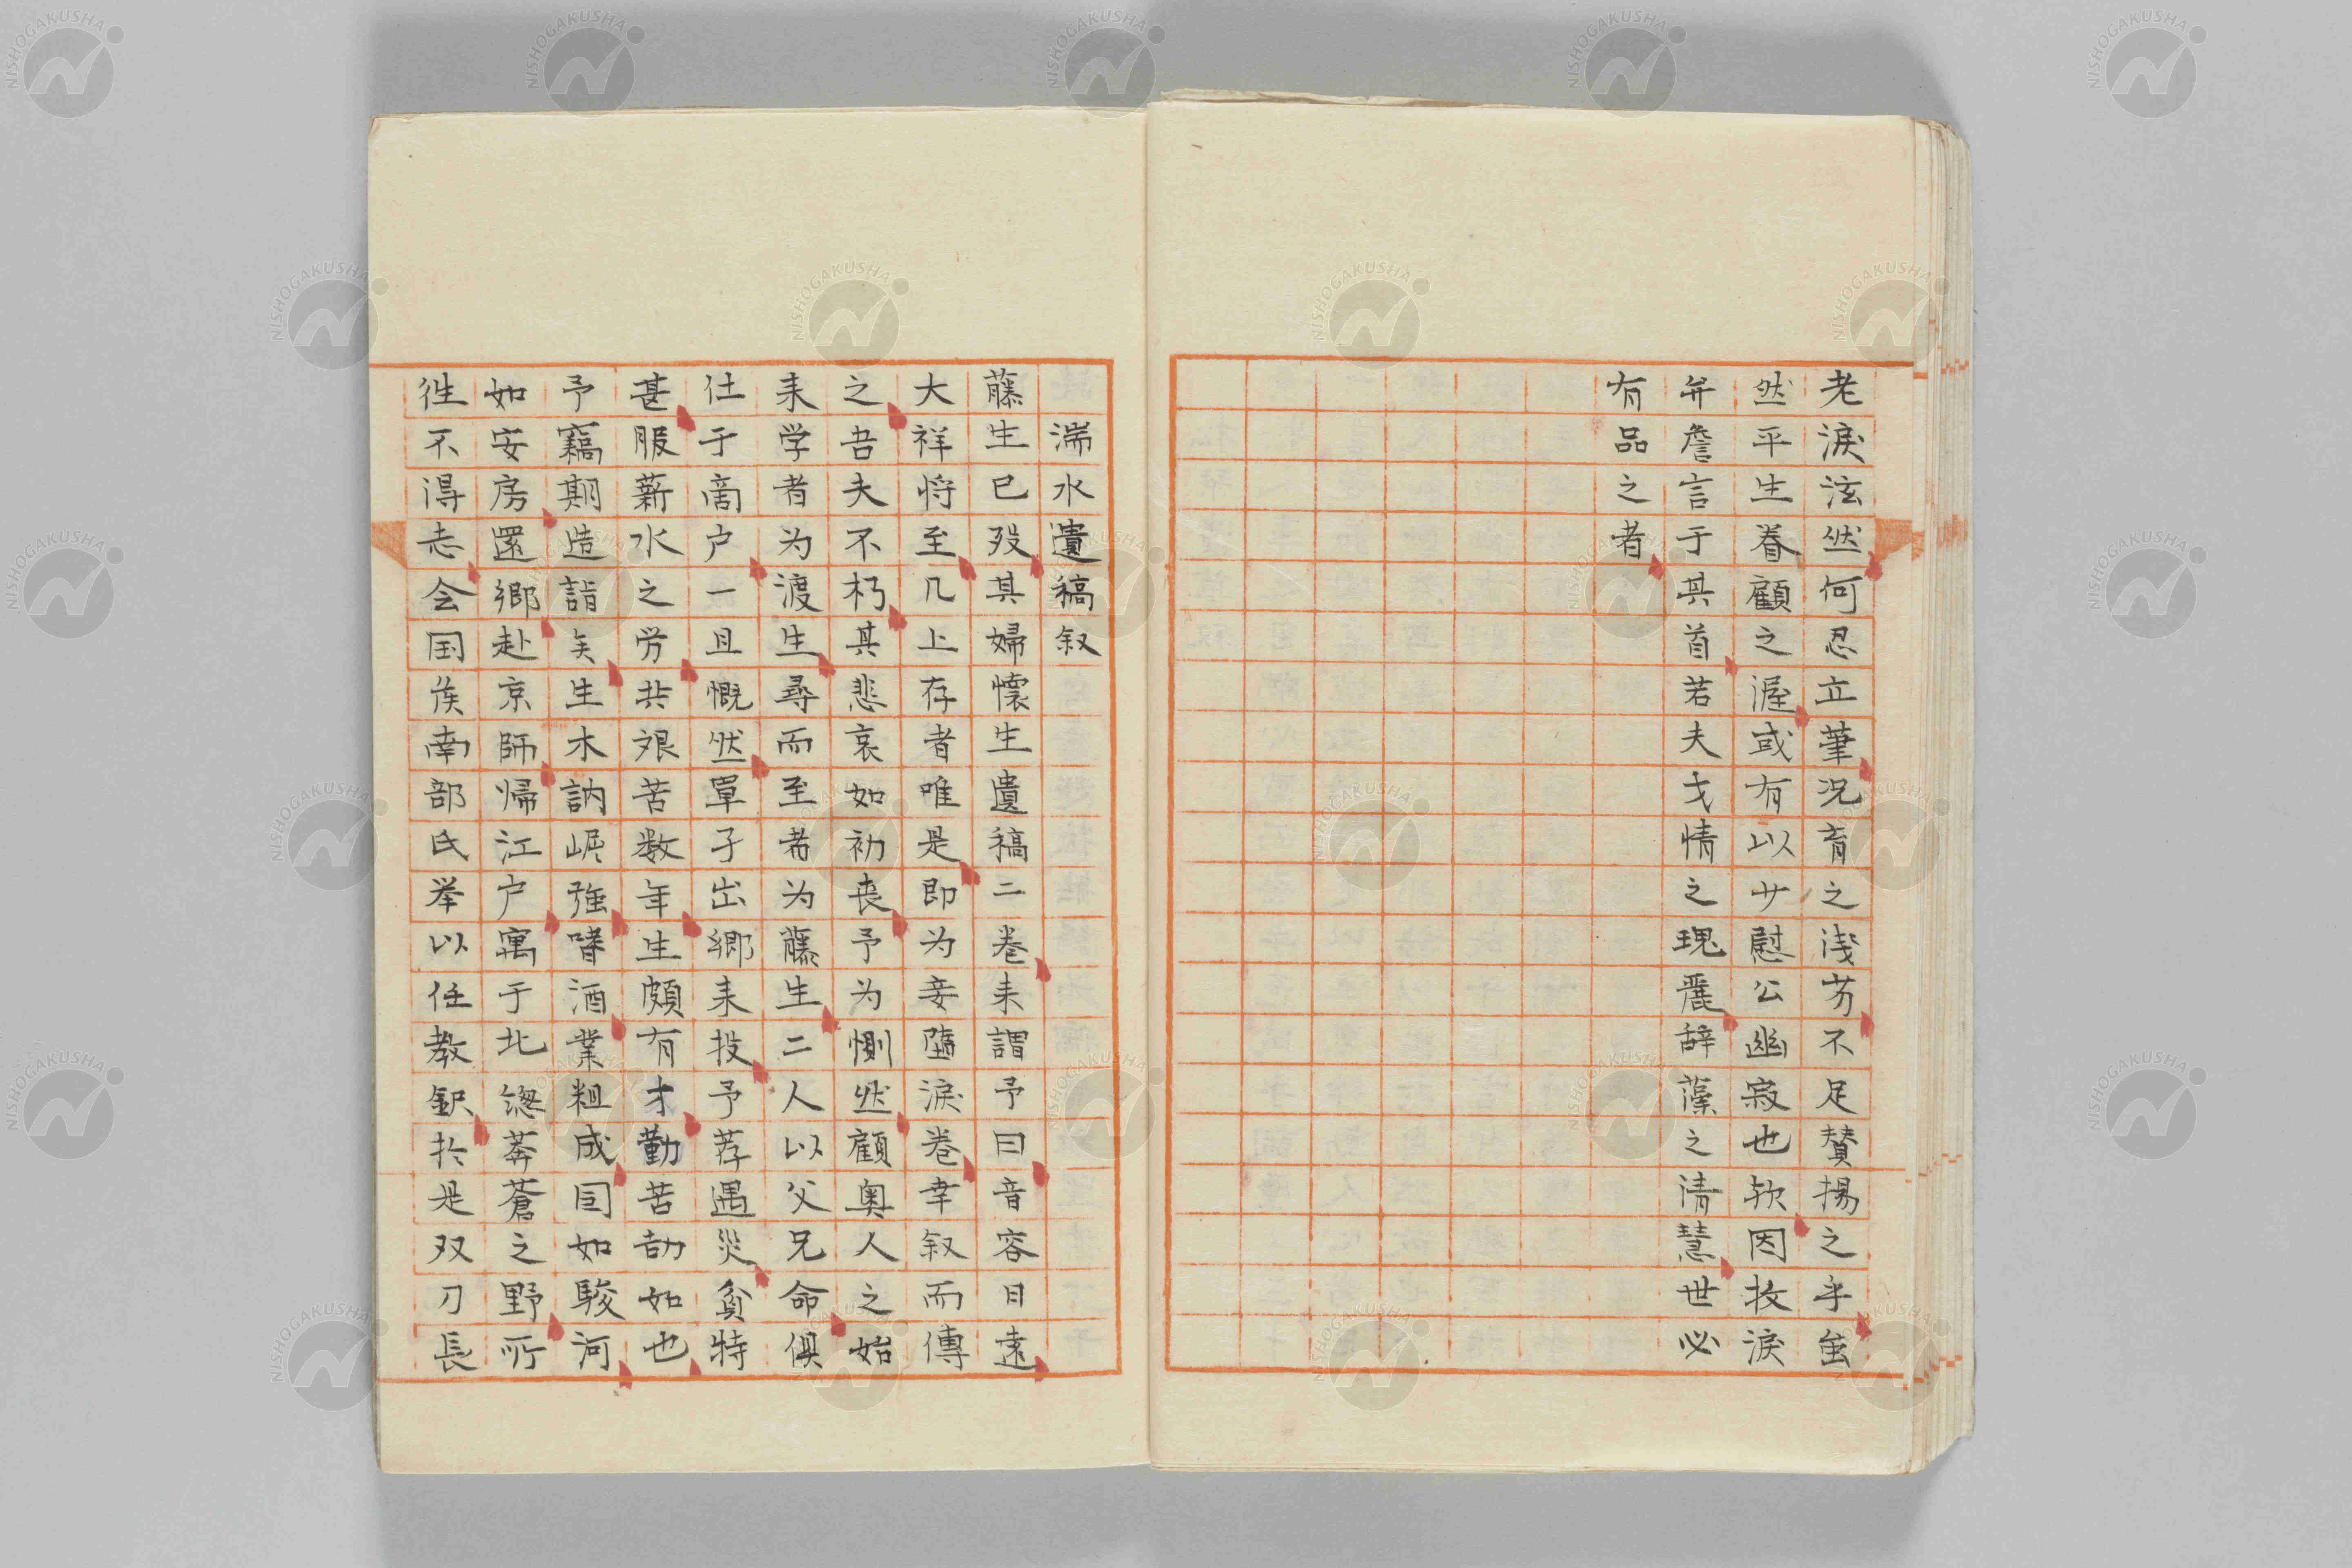 老淚泫然何忍立筆况育之浅劣不足賛揚之乎虽
然平生眷顧之渥或有以少慰公幽寂也欤因抆淚
弁詹言于其首若夫才情之瑰麗辞藻之清慧世必
有品之者
湍水遺稿叙
藤生已歿其婦懷生遺稿二巻耒謂予曰音容日遠
大祥将至几上存者唯是即为妾墮淚巻幸叙而傳
之吾夫不朽其悲哀如初丧予为惻然顧奥人之始
耒学者为渡生尋而至者为藤生二人以父兄命俱
仕于啇户一旦慨然單孑出郷耒投予荐遇災貧特
甚服薪水之労共艰苦数年生頗有才勤苦劼如也
予竊期造詣矣生木訥崛強嗜酒業粗成囙如駿河
如安房還郷赴京師帰江户寓于北總莽蒼之野所
徃不得志会国侯南部氏举以任教釈扵是双刀長
NISHOGAKUSHA